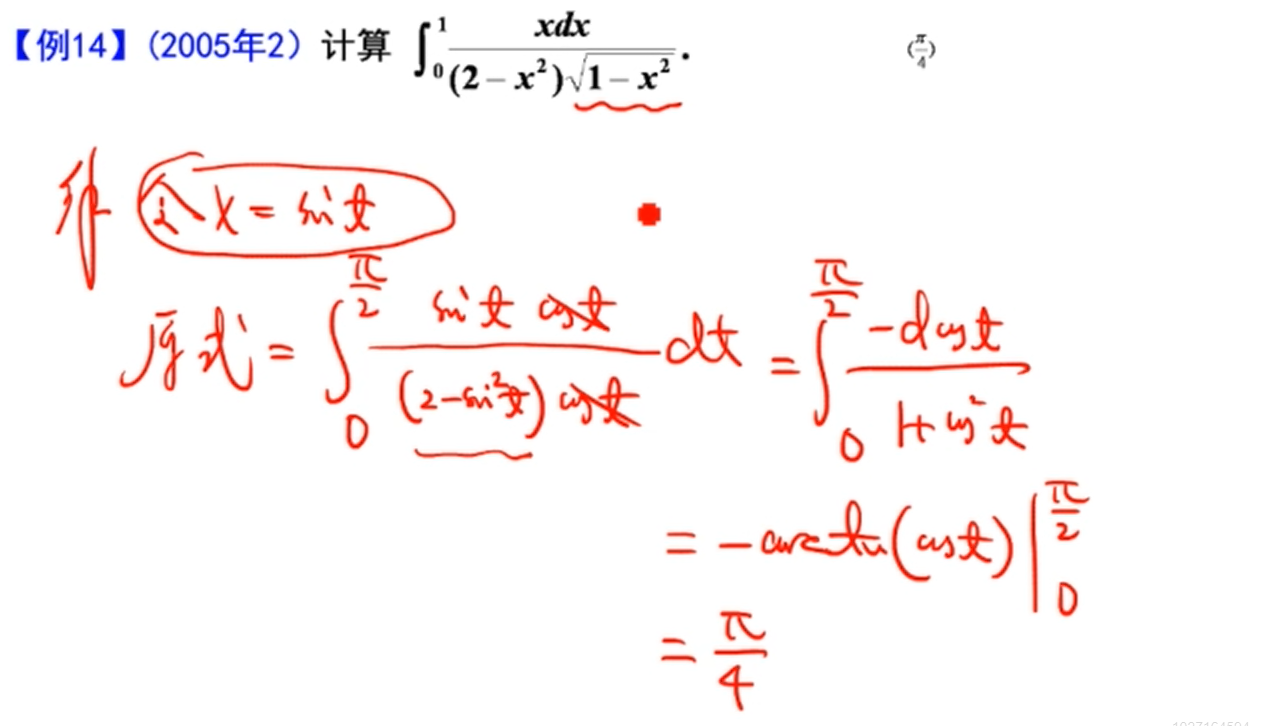 【例14】(2005年2) 计算 ∫₀¹ xdx / ((2 − x²)√(1 − x²)) . (π/4)
解 令 x = sin t
原式 = ∫₀^{π/2} sin t cos t / ((2 − sin² t) cos t) dt = ∫₀^{π/2} −d cos t / (1 + cos² t)
= − arctan(cos t) |₀^{π/2}
= π/4